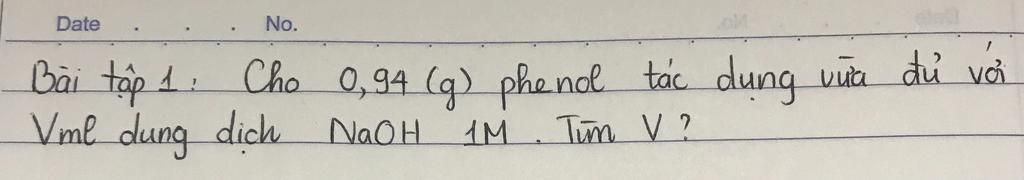 Date . . . No.
Bài tập 1: Cho 0,94 (g) phenol tác dụng vừa đủ với
Vml dung dịch NaOH 1M. Tìm V?